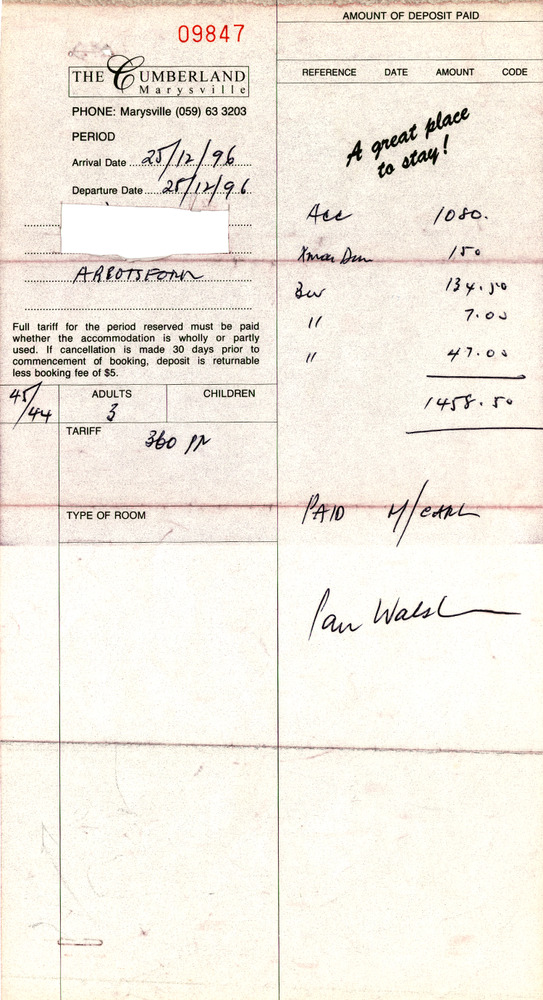 09847
THE CUMBERLAND
Marysville
PHONE: Marysville (059) 63 3203
PERIOD
Arrival Date 25/12/96
Departure Date 28/12/96
ABBOTSFORD
Full tariff for the period reserved must be paid
whether the accommodation is wholly or partly
used. If cancellation is made 30 days prior to
commencement of booking, deposit is returnable
less booking fee of $5.
45/44 ADULTS 3 CHILDREN
TARIFF 360 PN
TYPE OF ROOM
AMOUNT OF DEPOSIT PAID
REFERENCE DATE AMOUNT CODE
A great place
to stay!
Acc 1080.
Xmas Din 150
Bev 134.50
" 7.00
" 47.00
1458.50
PAID M/CARD
Walsh